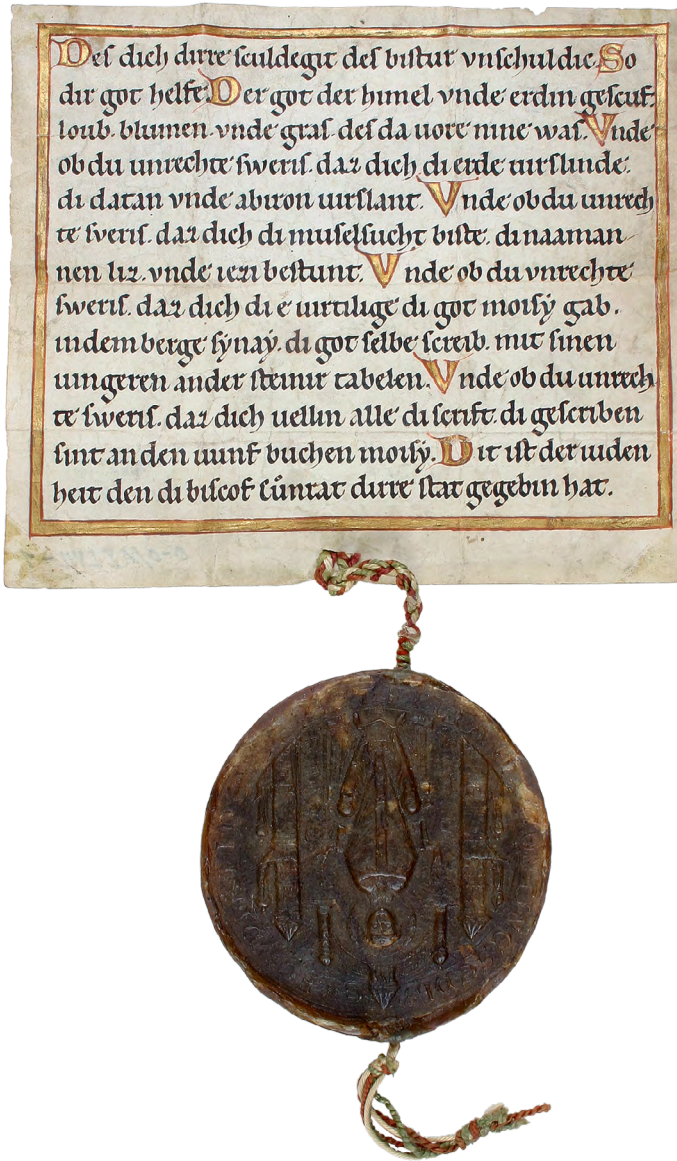 Des dich dirre sculdegit des bistur vnschuldic. So
dir got helfe. Der got der himel vnde erdin gescuf.
loub. blumen. vnde gras. des da uore nine was. Vnde
ob du unrechte sweris. daz dich di erde uirslinde.
di datan vnde abiron uirslant. Vnde ob du unrech
te sveris. daz dich di muselsucht biste. di naaman
nen liz. vnde iezi bestunt. Vnde ob du vnrechte
sweris. daz dich di e uirtilige di got moisy gab.
in dem berge synay. di got selbe screib. mit sinen
uingeren an der steinir tabelen. Vnde ob du unrech
te sweris. daz dich uellin alle di scrift. di gescriben
sint an den uunf buchen moisy. Dit ist der iuiden
heit den di biscof cůnrat dirre stat gegebin hat.